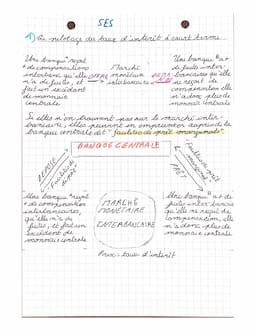 SES
1) Le pilotage du taux d'intérêt à court terme
Une banque "reçoit
+ de compensations
interbancaires qu'elle
n'a de fuites, et
fait un excédent
de monnaie
centrale
OFFRE
Marché
monétaire
interbancaire
DEMANDE
Une banque "a +
de fuites inter-
bancaires qu'elle
ne reçoit de
compensation elle
n'a donc plus de
monnaie centrale
Si elles n'en trouvent pas sur le marché inter-
bancaire, elles peuvent en emprunter auprès de la
banque centrale dit "facilités de prêt marginal"
BANQUE CENTRALE
DÉPOSE
Facilité de
dépôt
Facilité de prêt
marginal
PRÊT
Une banque "reçoit
+ de compensation
interbancaires,
qu'elle n'a de
fuites, et fait un
excédent de
monnaie centrale
MARCHÉ
MONÉTAIRE
INTERBANCAIRE
Une banque "a +
de fuites inter bancaires
qu'elle ne reçoit de
compensation, elle
n'a donc plus de
monnaie centrale
Prix : taux d'intérêt